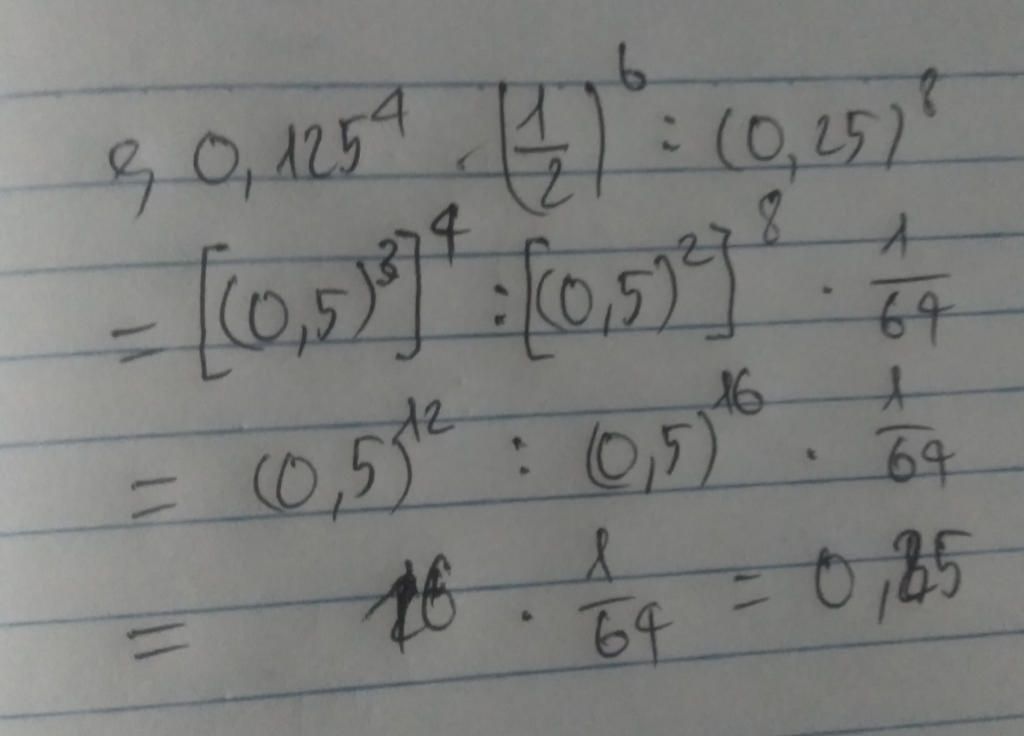 c, 0,125⁴ . (1/2)⁶ : (0,25)⁸
= [(0,5)³]⁴ : [(0,5)²]⁸ . 1/64
= (0,5)¹² : (0,5)¹⁶ . 1/64
= 16 . 1/64 = 0,25